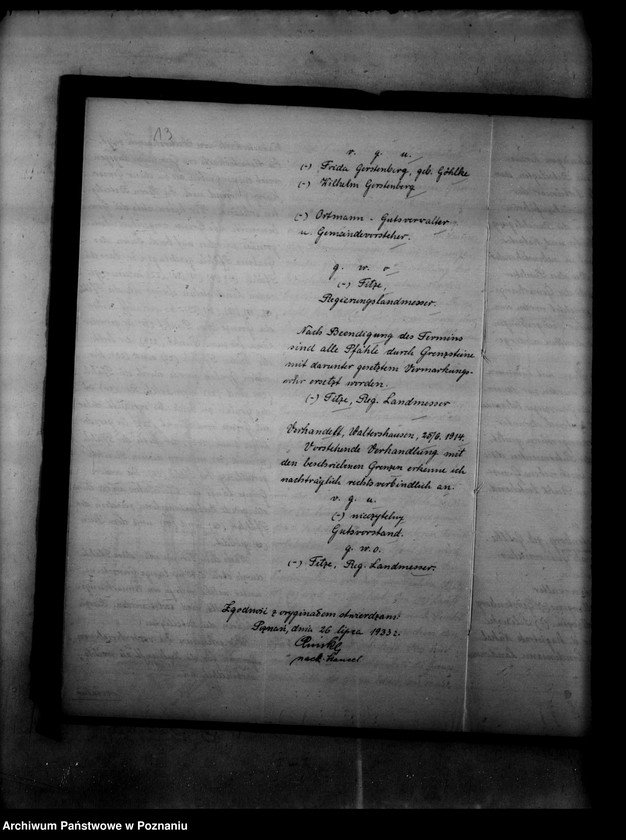 13
v. g. u.
(-) Frida Gerstenberg, geb. Göhlke
(-) Wilhelm Gerstenberg
(-) Ortmann - Gutsverwalter
u. Gemeindevorsteher.
g. w. o
(-) Fitze,
Regierungslandmesser.
Nach Beendigung des Termins
sind alle Pfähle durch Grenzsteine
mit darunter gesetztem Vermarkungs-
rohr ersetzt worden.
(-) Fitze, Reg. Landmesser
Verhandelt, Waltershausen, 25/6. 1914.
Vorstehende Verhandlung mit
den beschriebenen Grenzen erkenne ich
nachträglich rechtsverbindlich an.
v. g. u.
(-) nieczytelny
Gutsvorstand.
g. w. o.
(-) Fitze, Reg. Landmesser.
Zgodność z oryginałem stwierdzam:
Poznań, dnia 26 lipca 1933 r.
Archiwum Państwowe w Poznaniu